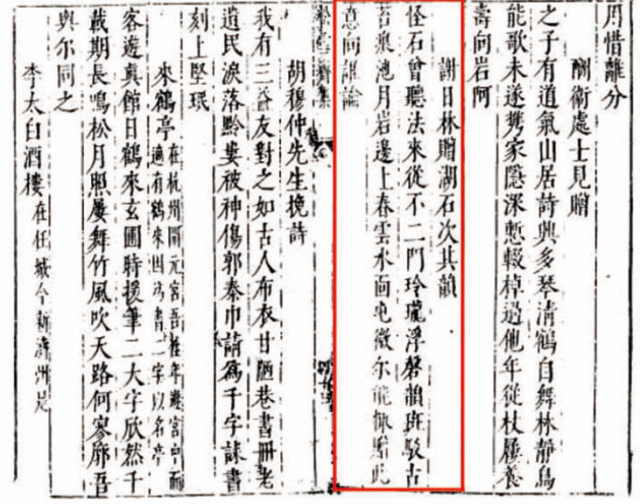 月惜離分
酬衛處士見贈
之子有道氣山居詩興多琴清鶴自舞林靜鳥
能歌未遂携家隱深慙輟棹過他年從杖屨養
壽向岩阿
謝日林贈湖石次其韻
怪石曾聽法來從不二門玲瓏浮磬韻斑駁古
苔痕池月岩邊上春雲水面屯微尔能贈此
意向誰論
松雪齋集
胡穆仲先生挽詩
我有三益友對之如古人布衣甘陋巷書冊老
遺民淚落黔婁被神傷郭泰巾請爲千字誄書
刻上堅珉
來鶴亭 在杭州開元宮吾往年遊宮中而
適有鶴來因爲書二字以名亭
客遊真館日鶴來玄圃時援筆二大字欣然千
載期長鳴松月照屢舞竹風吹天路何寥廓吾
與尔同之
李太白酒樓 在任城今新濟州是